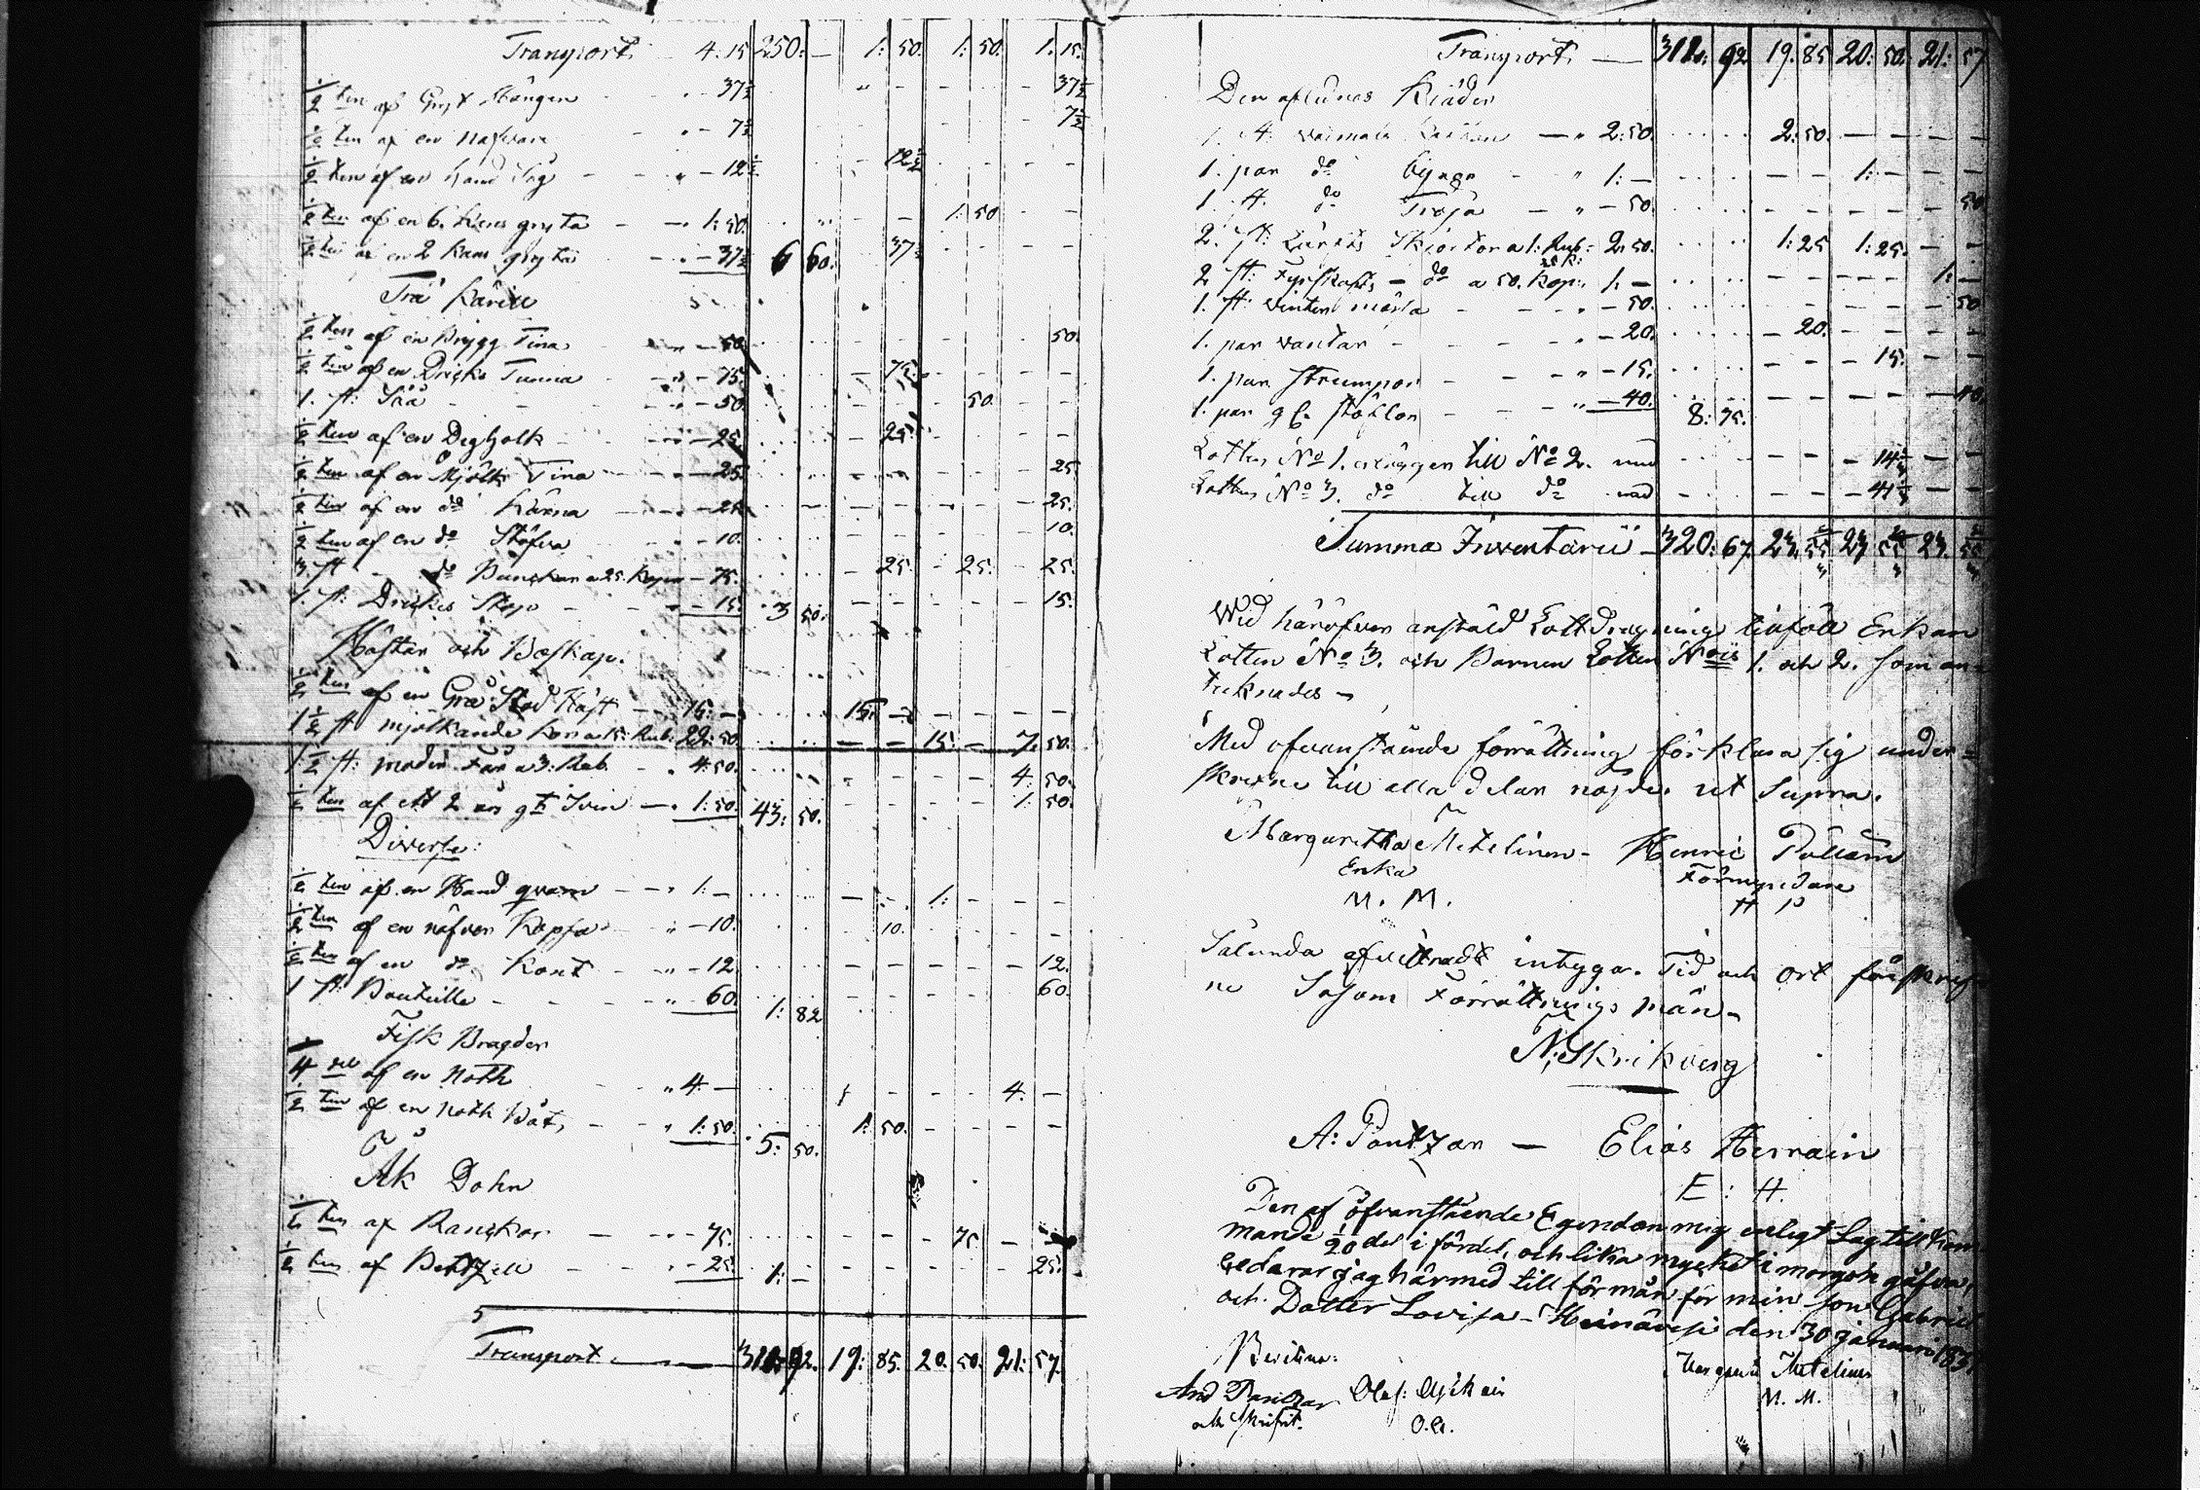 Transport 4.15 250:— 1:50. 1:50. 1:15.
½ ten af Gryt Hängen " – 37½ – – – – 37½
½ ten af en Nafvare " – 7½ – – – – 7½
½ ten af en hand Såg " – 12½ – 12½ – – – –
½ ten af en 6. kans gryta — 1:50. – – 1:50 – –
½ ten af en 2 kans gryta " – 37½ 6 60. 37½ – – – –
Trä Kärill
½ ten af en Brygg Tina – 50. – – – – 50.
½ ten af en Dricks Tunna " – 75. – 75. – – – –
1. st: Såå – 50. 50. – –
½ ten af en Degholk – 25. – 25. – – – –
½ ten af en Mjölk Tina – 25. – – – – 25.
½ ten af en do Kärna – 25. – – – – 25.
½ ten af en do Stäfva – 10. – – – – 10.
3. st do Bunckar a 25. Kop – 75. – 25. – 25. – 25.
1. st: Drickes Stop – 15. 3 50. – – – – 15.
Hästar och Boskap.
½ ten af en Grå Stod Häst 15:— 15. — – – – –
1½ st mjölkande Kor a 15: Rub: 22:50. – – 15 – 7. 50.
1½ st: moder Får a 3: Rub. " 4:50. 4. 50.
½ ten af ett 2 års gt Svin — 1:50. 43: 50. 1. 50.
Diverse:
½ ten af en Hand qvarn — 1:— – – 1: – – –
½ ten af en näfver Kappa " – 10. 10. – – – –
½ ten af en do Kont " – 12. – – – – – 12.
1 st: Bouteille " 60. 1: 82 – – – – 60.
Fisk Bragder
¼ del af en Noth " 4.— – – – 4. –
½ ten af en Noth Båt, " 1:50. 5: 50. 1: 50. – – – –
Åk Dohn
½ ten af Ranckor – 75. – – 75. –
½ ten af Betzell – 25. 1:— – – – – 25.
Transport. — 311: 92. 19: 85. 20. 50. 21: 57.
Transport. — 311: 92 19: 85 20: 50. 21: 57
Den aflidnas Kläder
1. st: vadmals — " 2:50. 2:50. — — — —
1. par do Byxor – " 1:— – – 1:— – –
1. st. do Tröja – " – 50. – – – – – 50.
2. st: Lärfts Skjortor a 1: Rub: 25 K: 2.50. 1:25 1:25. – –
2 st: Fyrskafts – do a 50. Kop: 1:— – – – – 1:—
1. st: vinter mössa – " – 50. – – – – – 50
1. par vantar – " – 20. – 20. – – – –
1. par strumpor – " – 15. – – – 15. – –
1. par gl. stöflor – " – 40. 8: 75. – – – – – 40.
Lotten No 1. erlägger till No 2. med – – – 14 – –
Lotten No 3. do till do med – – – 41 – –
Summa Inventarii 320: 67. 23. 55 23 55 23. 55
Wid häröfver anstäld Lottdragning tilföll Enkan
Lotten No 3. och Barnen Lotten Nois 1. och 2. som an=
teknades –
Med ofvanstående förrättning förklara sig under=
skrefne till alla delar nöjde. ut Supra.
Margaretha Metelinen – Henric Pöllänen
Enka Förmyndare
M. M. H P
Sålunda afvittradt intyga. Tid och ort förskrif=
ne Såsom Förrättnings män –
N. Skrikberg
A: Pantzar — Elias Herrain
E: H.
Den af ofvanstående Egendom mig enligt Lag till kom=
mande 1/20 del i fördel, och lika mycket i morgon gåfva,
cedarar jag härmed till förmån för min son Gabriel
och Dotter Lovisa – Heinävesi den 30 januari 183
Bevitna: Margareta Metelinen
And Pantzar Olof: M. M.
och Skrifvit. O.